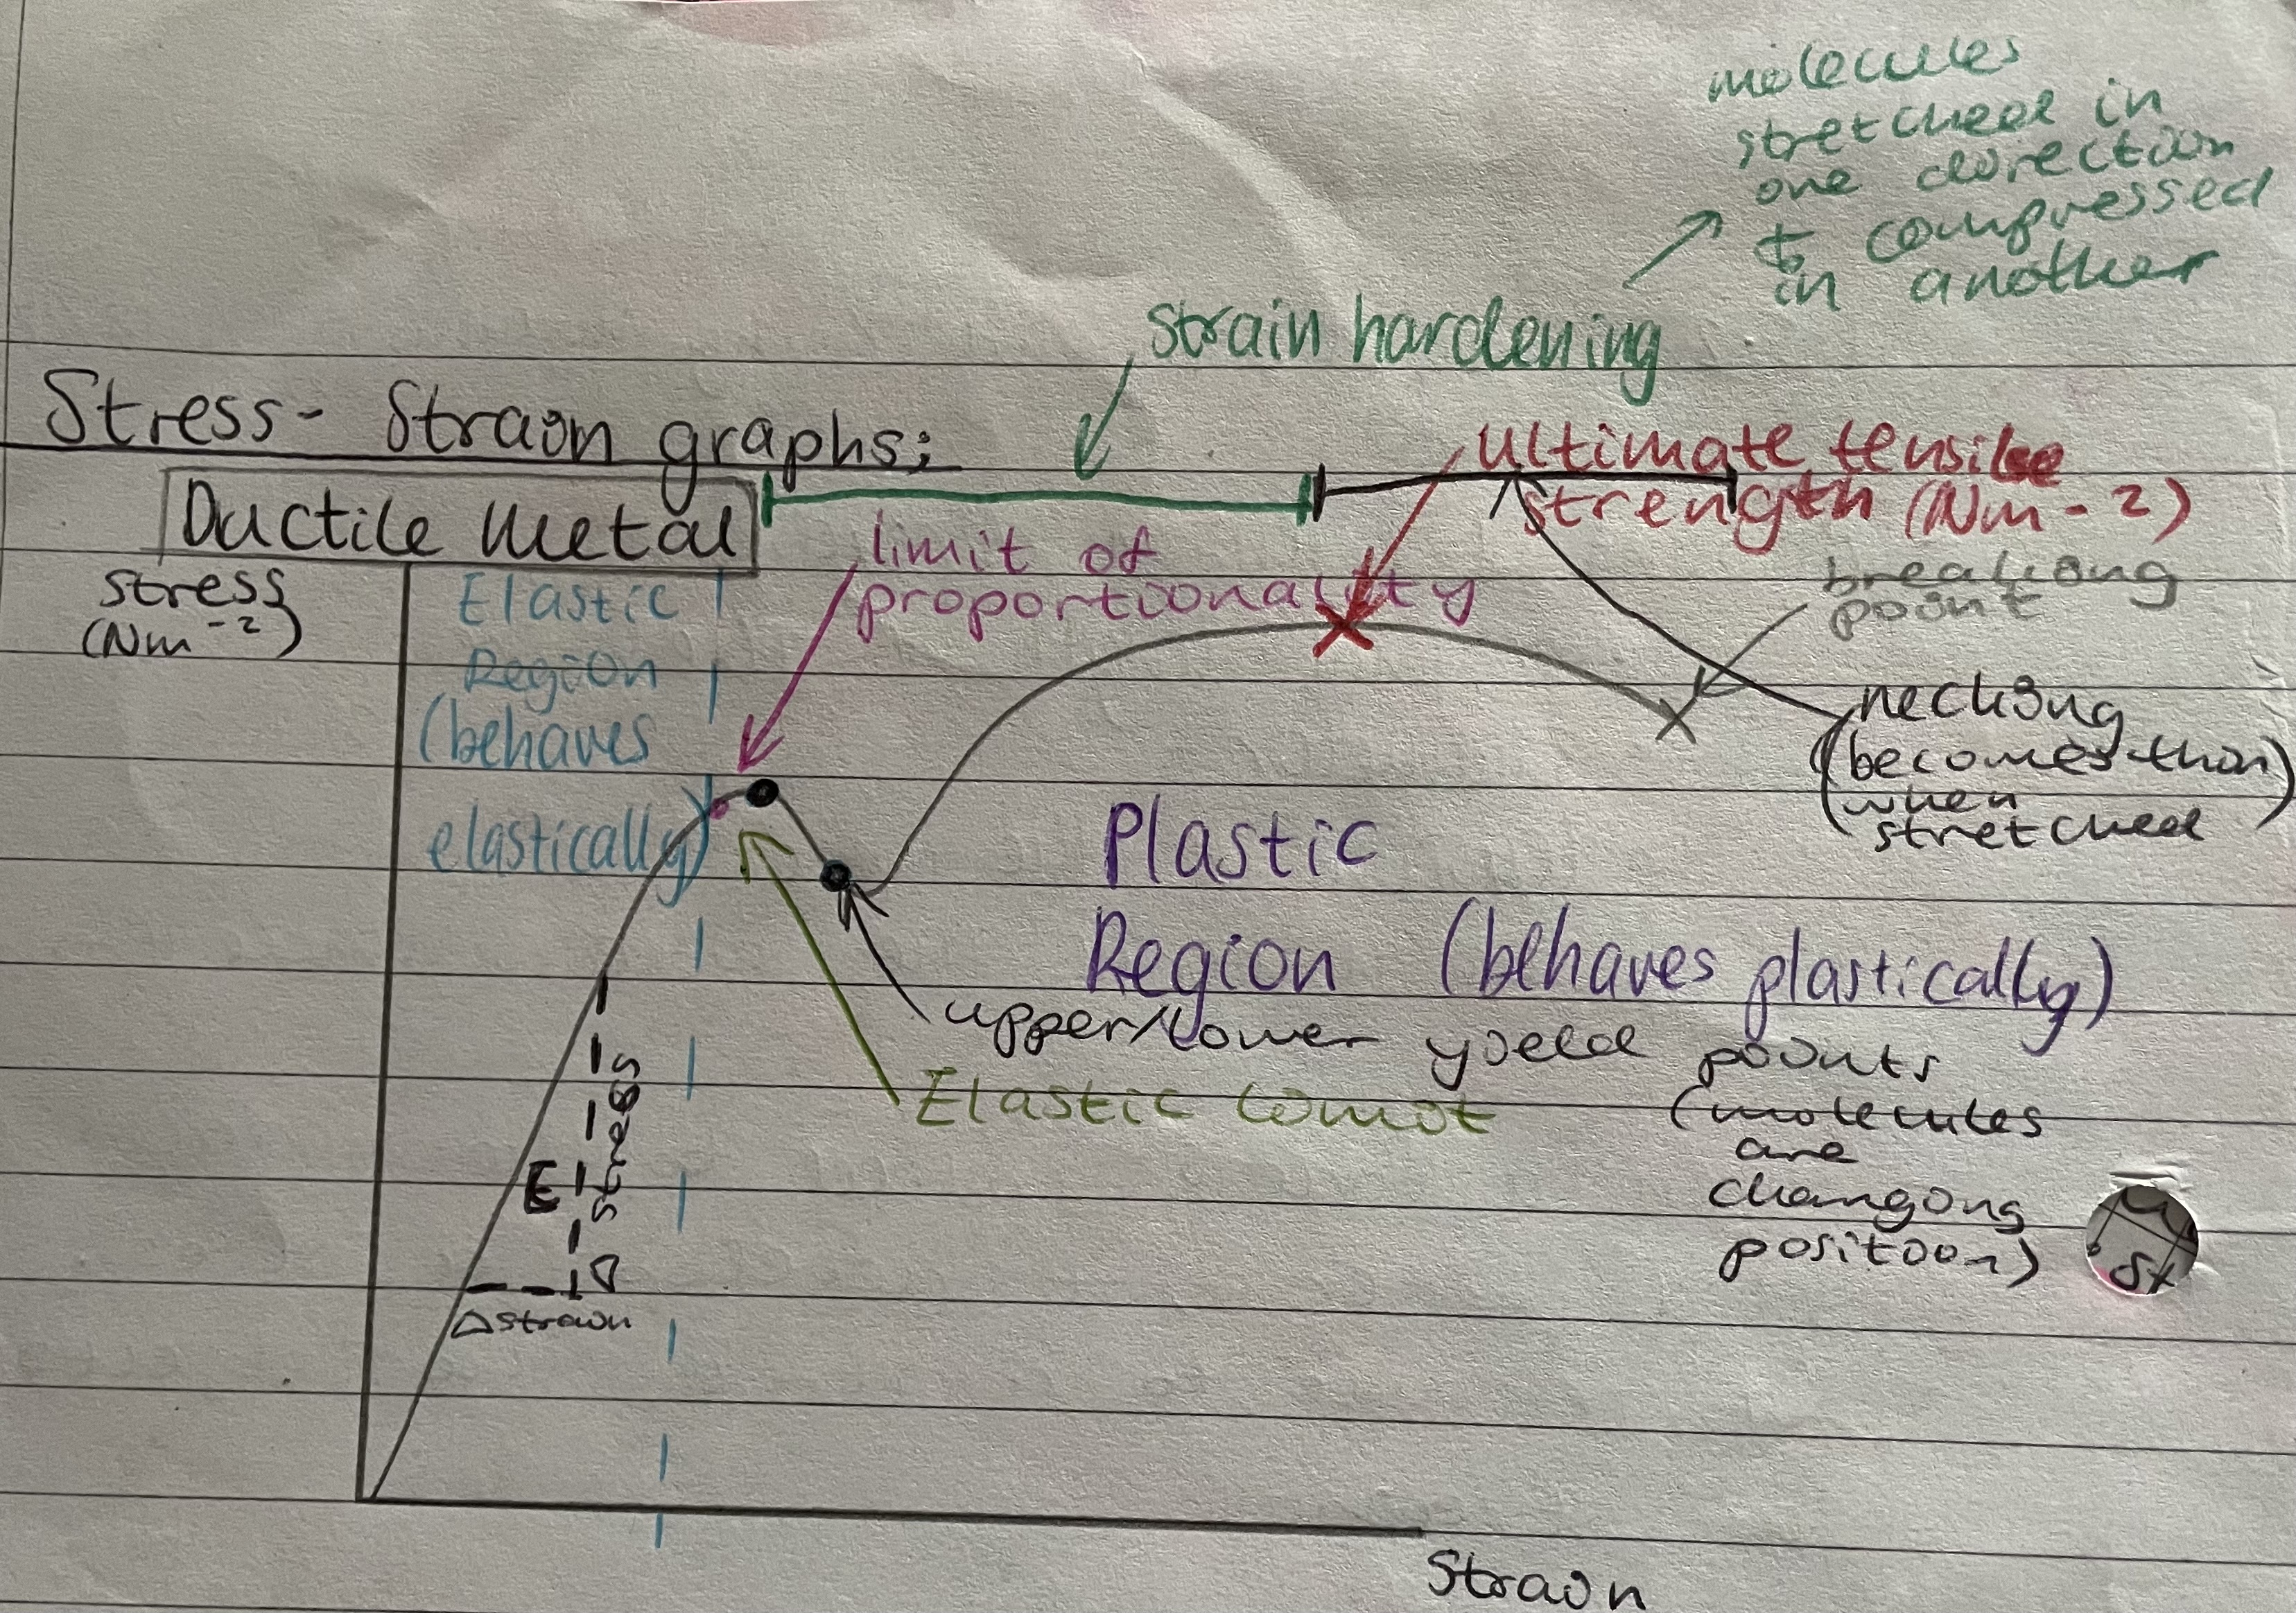 molecules
stretched in
one direction
& compressed
in another
strain hardening
Stress - Strain graphs:
Ductile Metal
ultimate tensile
strength (Nm-2)
limit of
proportionality
breaking
point
stress
(Nm-2)
Elastic
Region
(behaves
elastically)
necking
(becomes thin)
(when
stretched
Plastic
Region (behaves plastically)
upper/lower yield points
(molecules
are
changing
position)
Elastic limit
E
Δ stress
Δ strain
Strain